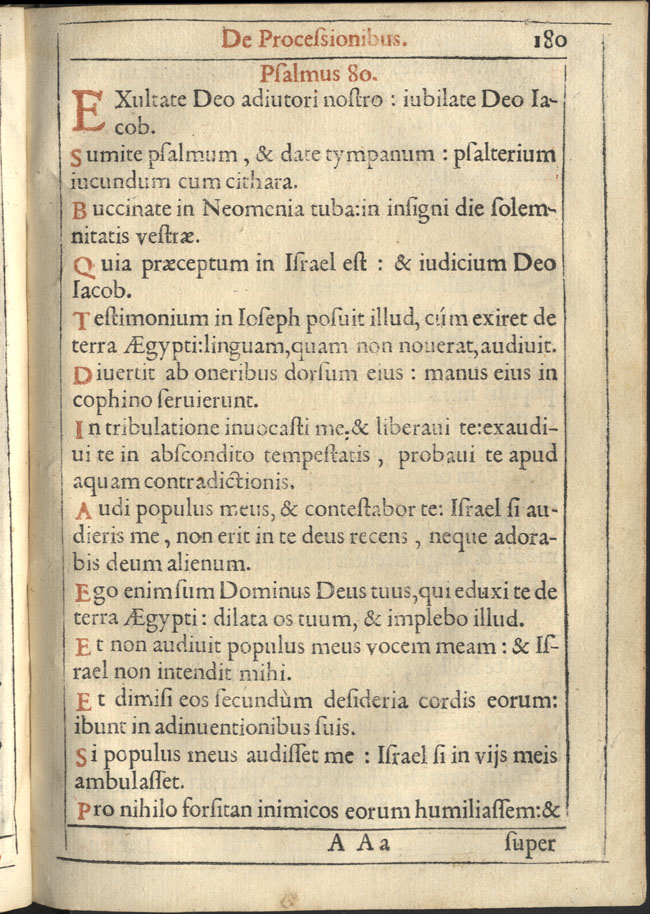 De Proceſsionibus. 180
Pſalmus 80.
EXultate Deo adiutori noſtro : iubilate Deo Ia-
cob.
Sumite pſalmum , & date tympanum : pſalterium
iucundum cum cithara.
Buccinate in Neomenia tuba:in inſigni die ſolem-
nitatis veſtræ.
Quia præceptum in Iſrael eſt : & iudicium Deo
Iacob.
Teſtimonium in Ioſeph poſuit illud, cúm exiret de
terra Ægypti:linguam,quam non nouerat,audiuit.
Diuertit ab oneribus dorſum eius : manus eius in
cophino ſeruierunt.
In tribulatione inuocaſti me,& liberaui te:exaudi-
ui te in abſcondito tempeſtatis , probaui te apud
aquam contradictionis.
Audi populus meus, & conteſtabor te: Iſrael ſi au-
dieris me , non erit in te deus recens , neque adora-
bis deum alienum.
Ego enim ſum Dominus Deus tuus,qui eduxi te de
terra Ægypti : dilata os tuum, & implebo illud.
Et non audiuit populus meus vocem meam : & Iſ-
rael non intendit mihi.
Et dimiſi eos ſecundùm deſideria cordis eorum:
ibunt in adinuentionibus ſuis.
Si populus meus audiſſet me : Iſrael ſi in vijs meis
ambulaſſet.
Pro nihilo forſitan inimicos eorum humiliaſſem:&
A A a ſuper